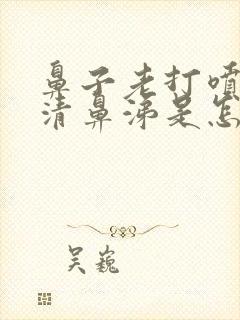 鼻子老打喷
清鼻涕是怎
吴巍